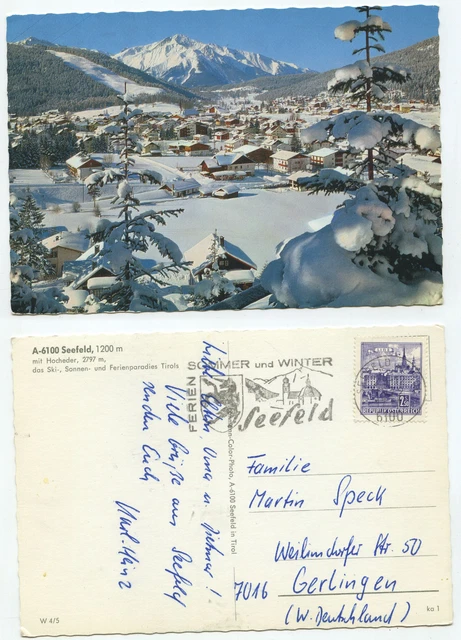 A-6100 Seefeld, 1200 m
mit Hocheder, 2797 m,
das Ski-, Sonnen- und Ferienparadies Tirols
FERIEN SOMMER und WINTER
Seefeld
6100
Oma u.
Viele Grüße aus Seefeld
senden Euch
-Color-Photo, A-6100 Seefeld in Tirol
Familie
Martin Speck
Weilimdorfer Str. 50
7016 Gerlingen
(W. Deutschland)
W 4/5
ka 1